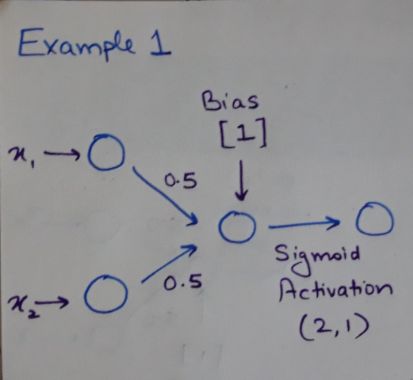 Example 1
Bias
[1]
x₁
0.5
x₂
0.5
Sigmoid
Activation
(2,1)